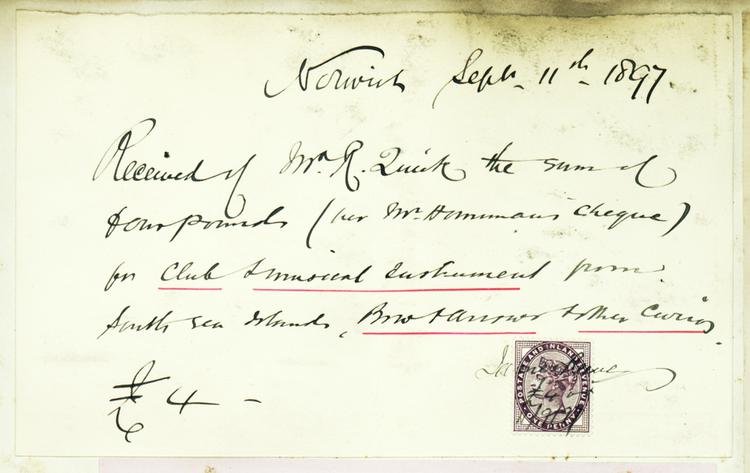 Norwich Septr. 11th 1897.
Received of Mr. R. Quick the sum of
four pounds (per Mr. Horniman's cheque)
for Club & musical Instrument from
South Sea Islands, Bow & Arrows & other Curios
£4 -
POSTAGE AND INLAND REVENUE
ONE PENNY